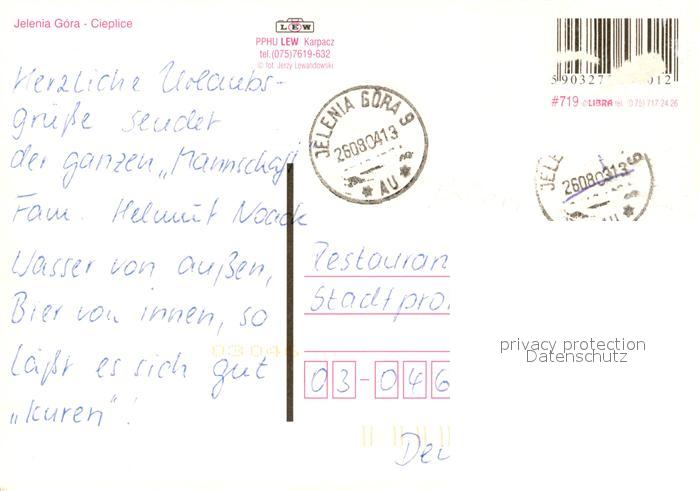 Jelenia Góra - Cieplice
LEW
PPHU LEW Karpacz
tel.(075)7619-632
© fot. Jerzy Lewandowski
#719 ©LIBRA tel. (0 75) 717 24 26
Herzliche Urlaubs-
grüße sendet
der ganzen „Mannschaft
Fam. Helmut Noack
Wasser von außen,
Bier von innen, so
läßt es sich gut
„kuren"!
JELENIA GÓRA 9
26080413
AU
JELE
9
AU
Restauran
Stadtpro
03046
03-046
Deu
privacy protection
Datenschutz